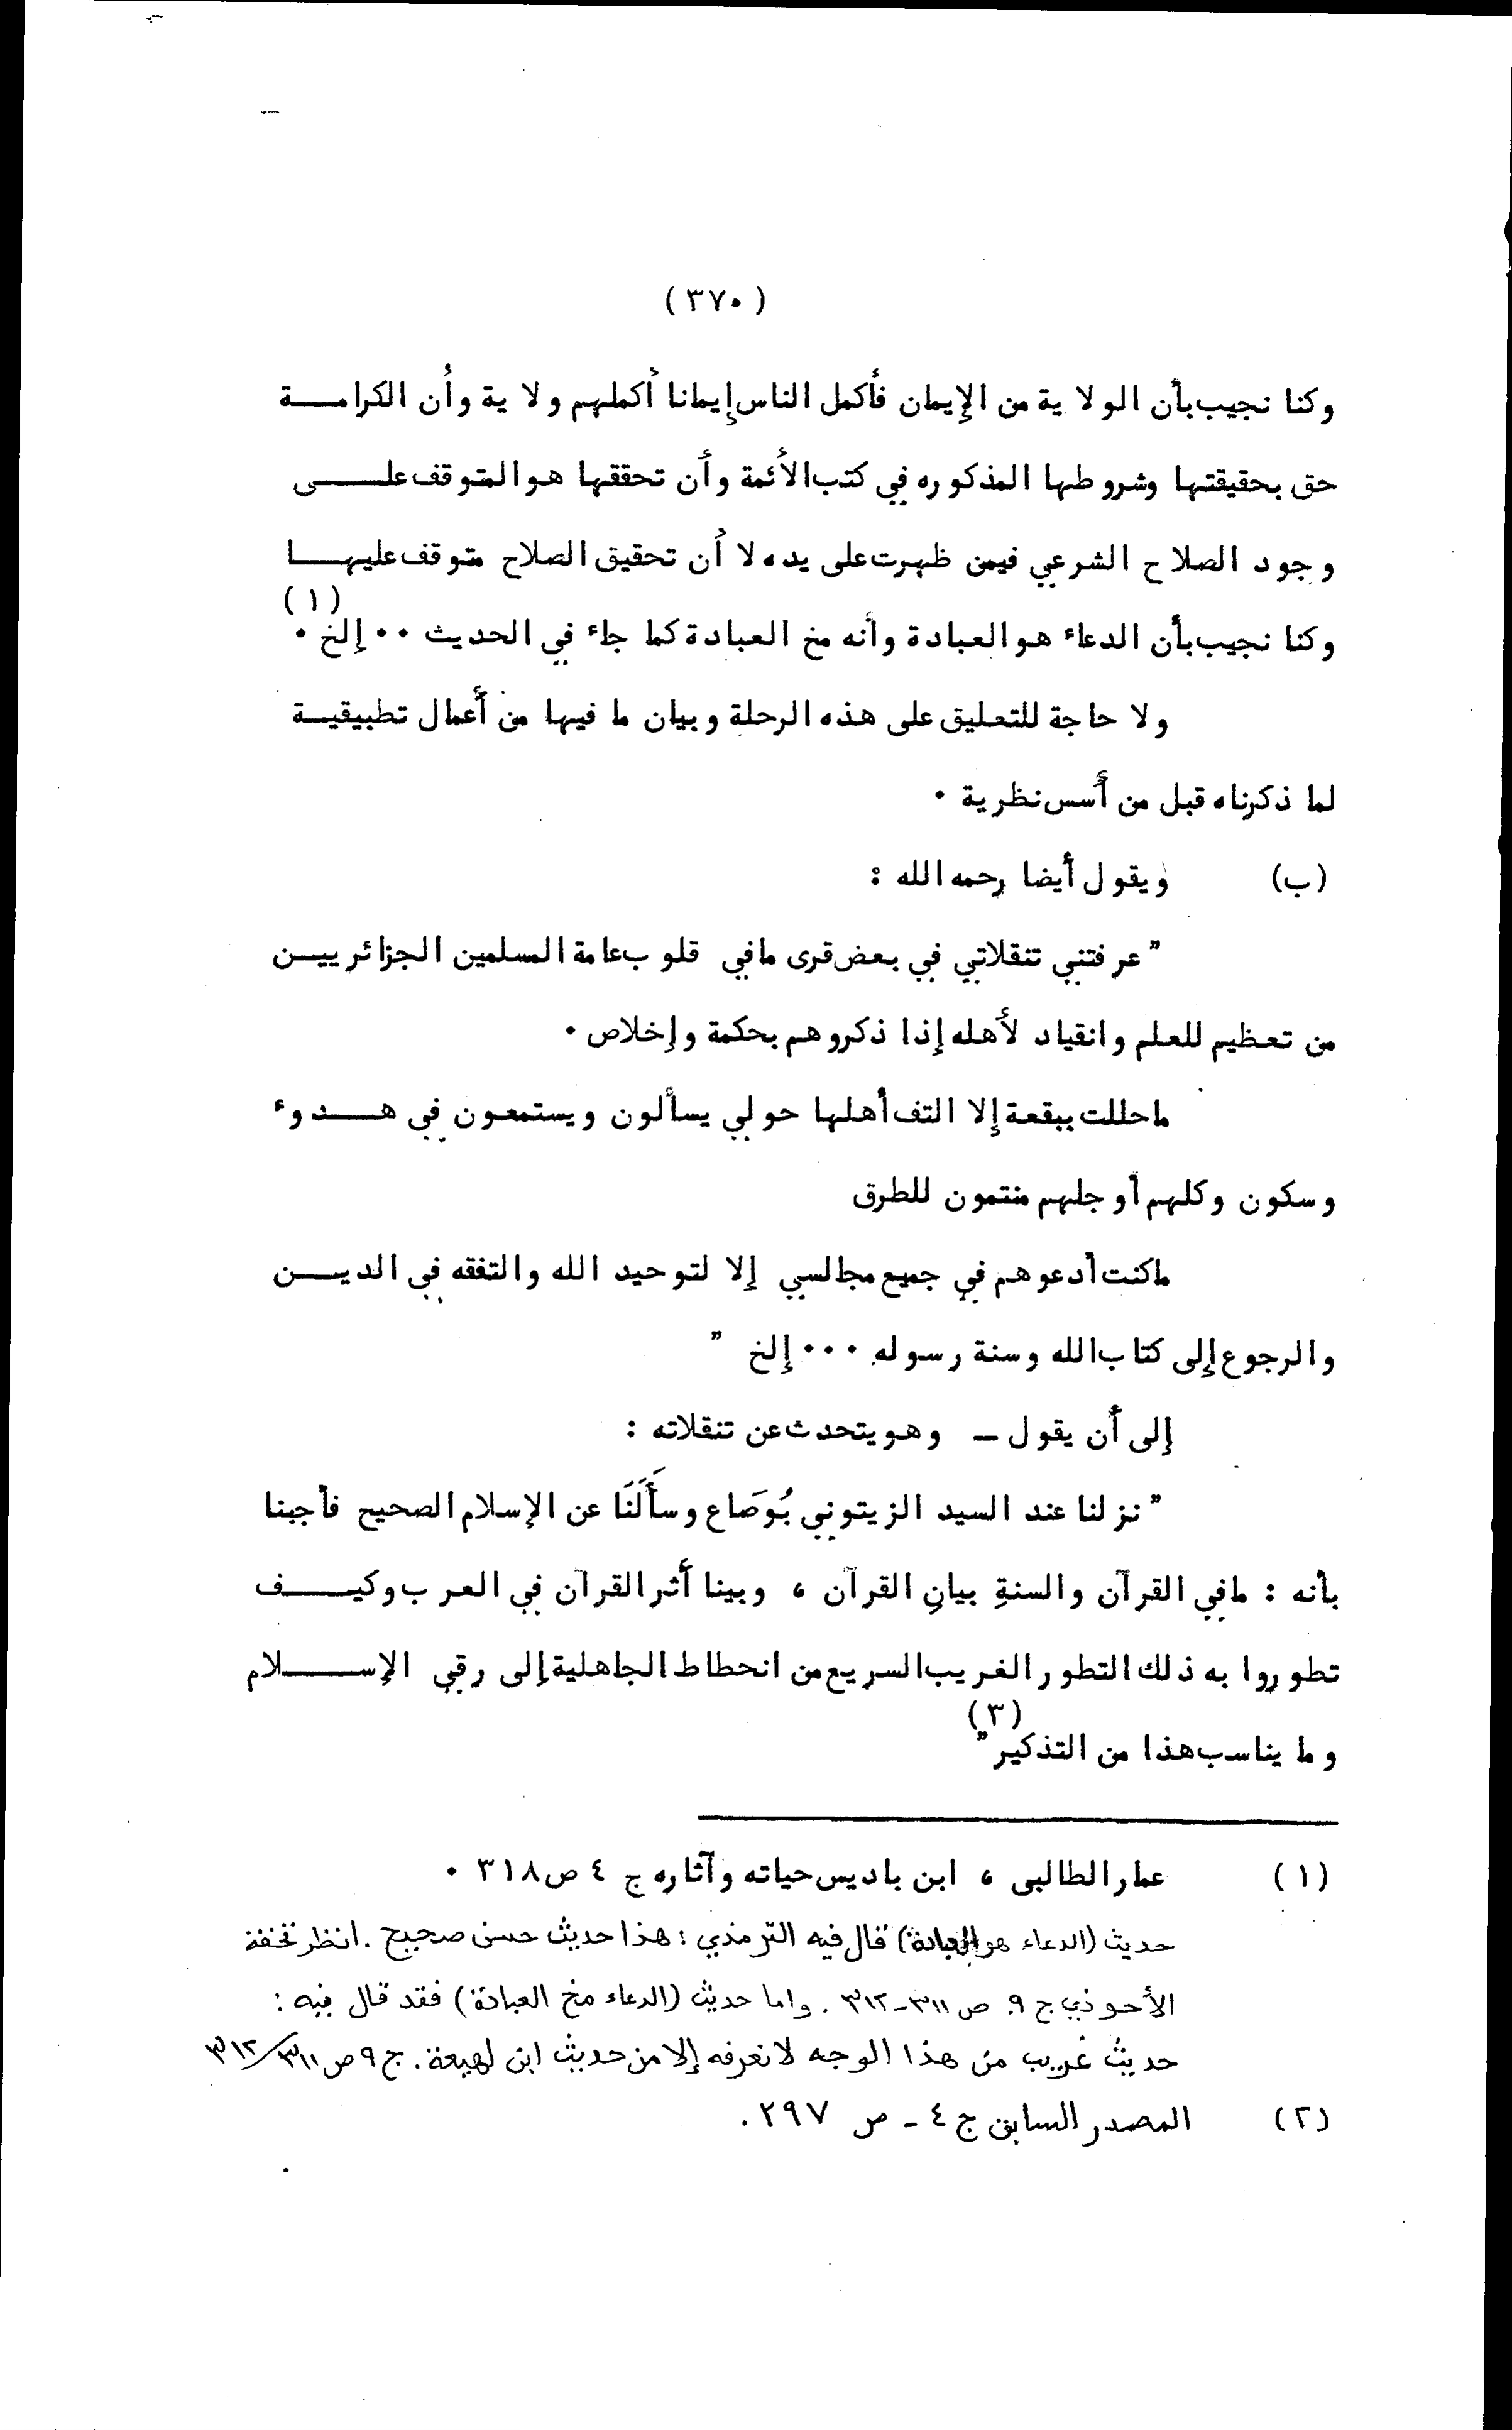 (٣٧٠)
وكنا نجيب بأن الولاية من الإيمان فأكمل الناس إيمانا أكملهم ولاية وأن الكرامة
حق بحقيقتها وشروطها المذكوره في كتب الأئمة وأن تحققها هو المتوقف على
وجود الصلاح الشرعي فيمن ظهرت على يده لا أن تحقيق الصلاح متوقف عليها
وكنا نجيب بأن الدعاء هو العبادة وأنه مخ العبادة كما جاء في الحديث ٠٠ إلخ ٠ (١)
ولا حاجة للتعليق على هذه الرحلة وبيان ما فيها من أعمال تطبيقية
لما ذكرناه قبل من أسس نظرية ٠
(ب) ويقول أيضا رحمه الله :
" عرفتني تنقلاتي في بعض قرى مافي قلوب عامة المسلمين الجزائريين
من تعظيم للعلم وانقياد لأهله إذا ذكروهم بحكمة وإخلاص ٠
ماحللت ببقعة إلا التف أهلها حولي يسألون ويستمعون في هدوء
وسكون وكلهم أو جلهم منتمون للطرق
ماكنت أدعوهم في جميع مجالسي إلا لتوحيد الله والتفقه في الدين
والرجوع إلى كتاب الله وسنة رسوله ٠٠٠ إلخ "
إلى أن يقول ـ وهو يتحدث عن تنقلاته :
" نزلنا عند السيد الزيتوني بُوصَاع وسأَلَنَا عن الإسلام الصحيح فأجبنا
بأنه : مافي القرآن والسنةِ بيانِ القرآن ، وبينا أثر القرآن في العرب وكيف
تطوروا به ذلك التطور الغريب السريع من انحطاط الجاهلية إلى رقي الإسلام
وما يناسب هذا من التذكير " (٣)
(١) عمار الطالبى ، ابن باديس حياته وآثاره ج ٤ ص ٣١٨ ٠
حديث (الدعاء هو العبادة) قال فيه الترمذي : هذا حديث حسن صحيح . انظر تحفة
الأحوذي ج ٩ ص ٣١١-٣١٢ . واما حديث (الدعاء مخ العبادة) فقد قال فيه :
حديث غريب من هذا الوجه لا نعرفه إلا من حديث ابن لهيعة . ج ٩ ص ٣١١/٣١٢
(٢) المصدر السابق ج ٤ - ص ٢٩٧ .